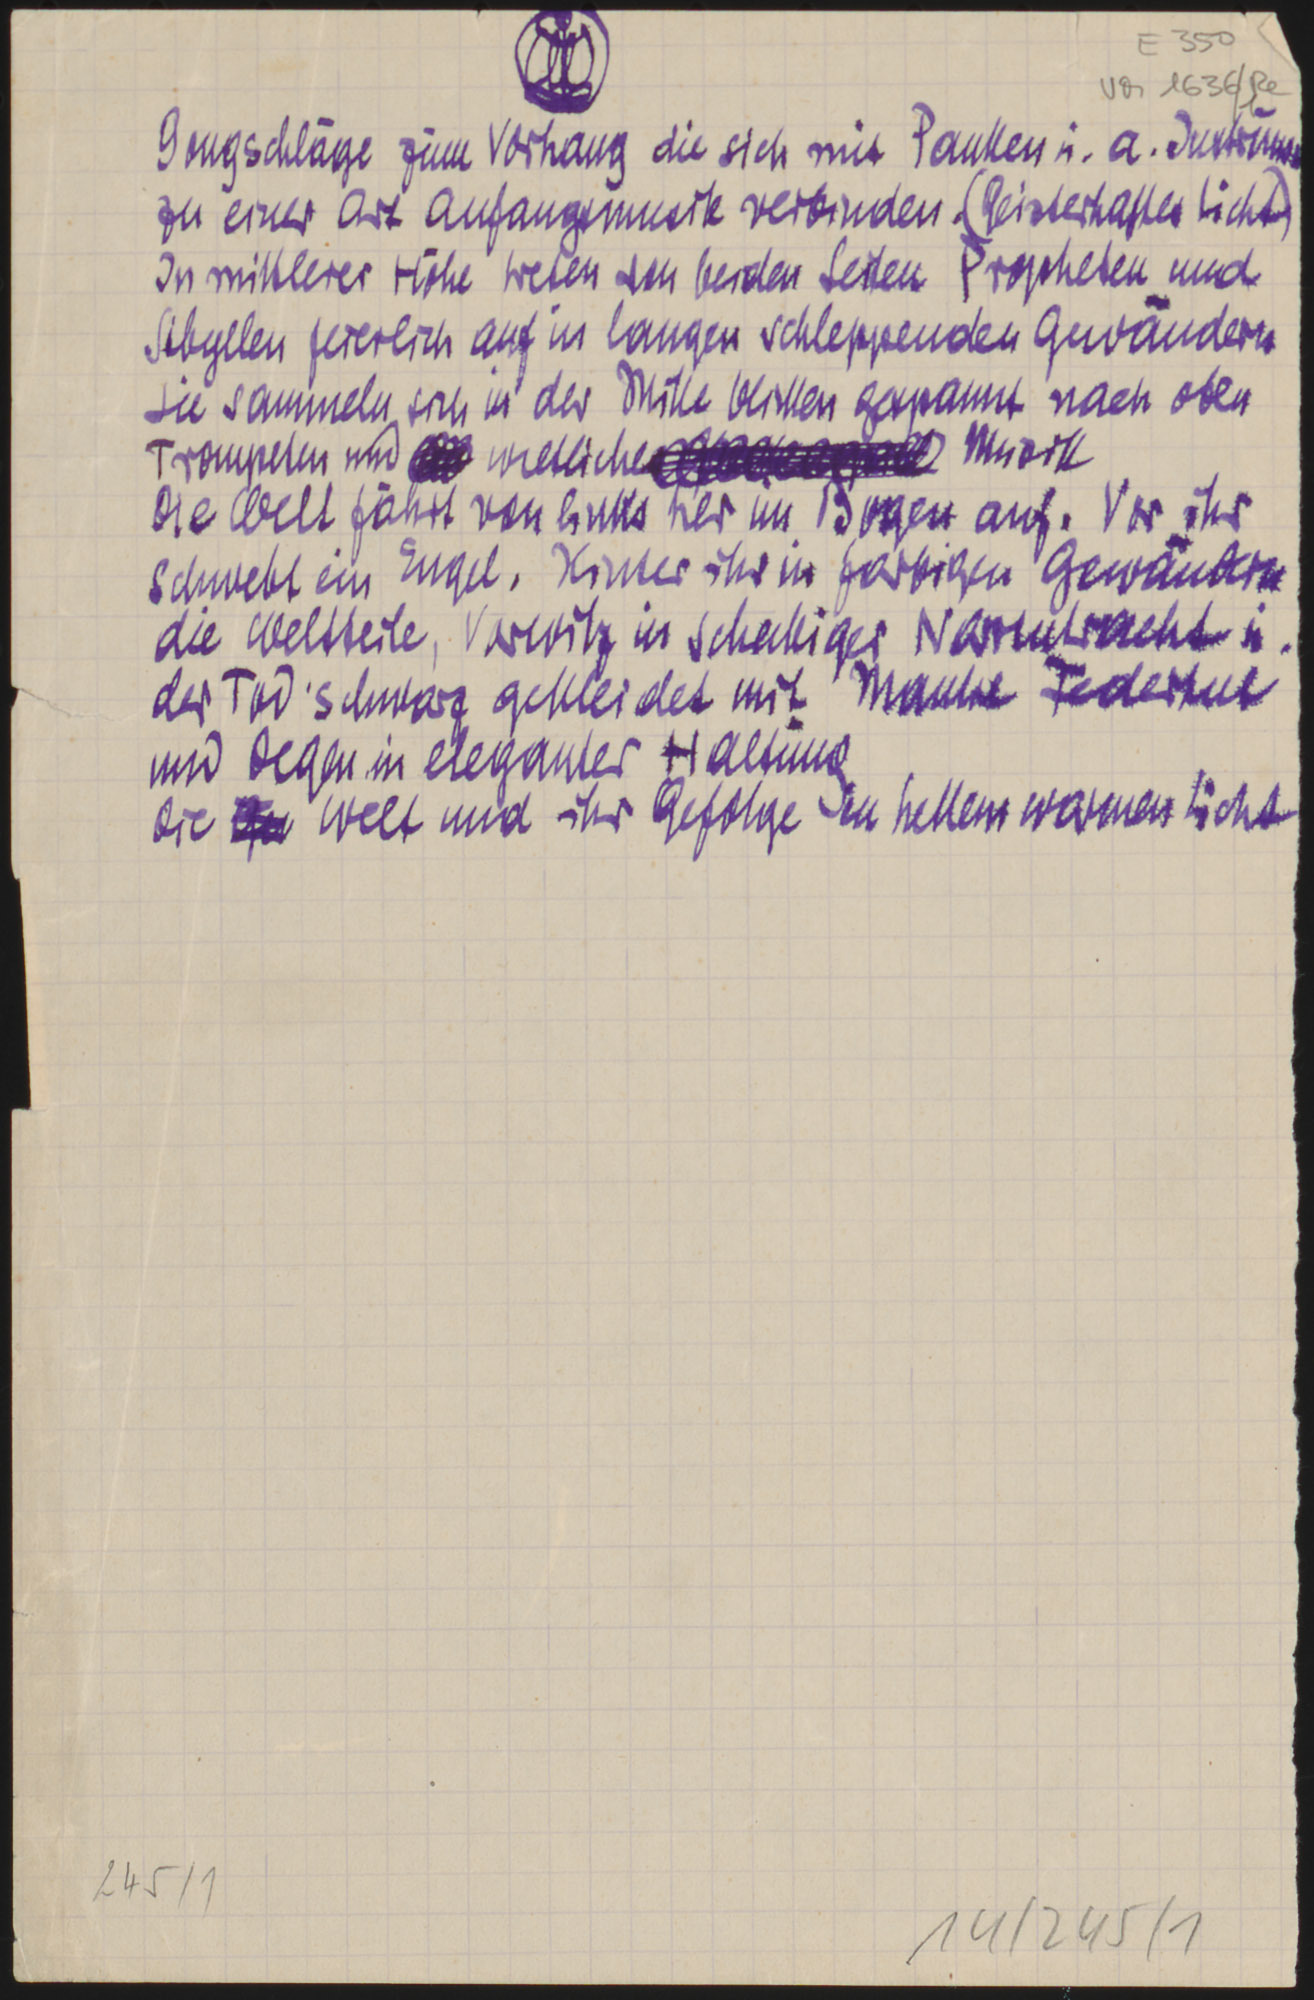 E 350
VOi 1636/Re
Gongschläge zum Vorhang die sich mit Pauken u. a. Instrum
zu einer Art Anfangsmusik verbinden. (Geisterhaftes Licht)
In mittlerer Höhe treten von beiden Seiten Propheten und
Sibyllen feierlich auf in langen schleppenden Gewändern
Sie sammeln sich in der Mitte blicken gespannt nach oben
Trompeten und weltliche Musik
Die Welt fährt von links her im Bogen auf. Vor ihr
schwebt ein Engel. Hinter ihr in farbigen Gewändern
die Weltteile, Vorwitz in scheckiger Narrentracht u.
der Tod schwarz gekleidet mit Mantel Federhut
und Degen in eleganter Haltung
Die Welt und ihr Gefolge in hellem warmen Licht
245/1
14/245/1